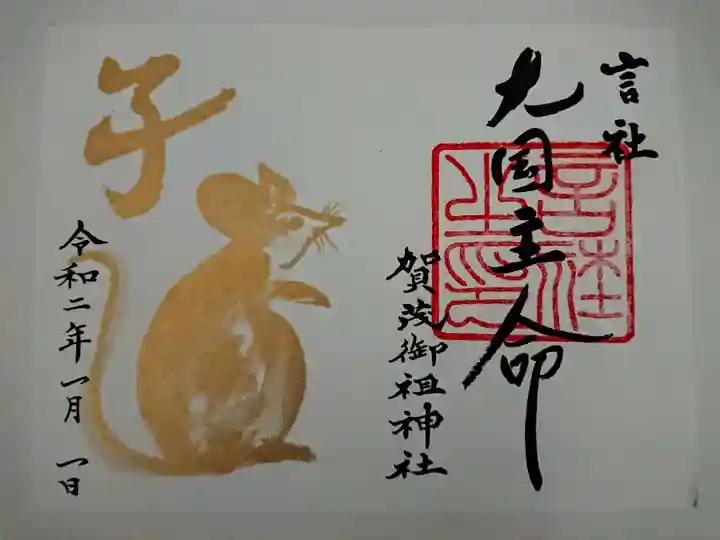 言社
大国主命
賀茂御祖神社
言社之印
子
令和二年一月一日